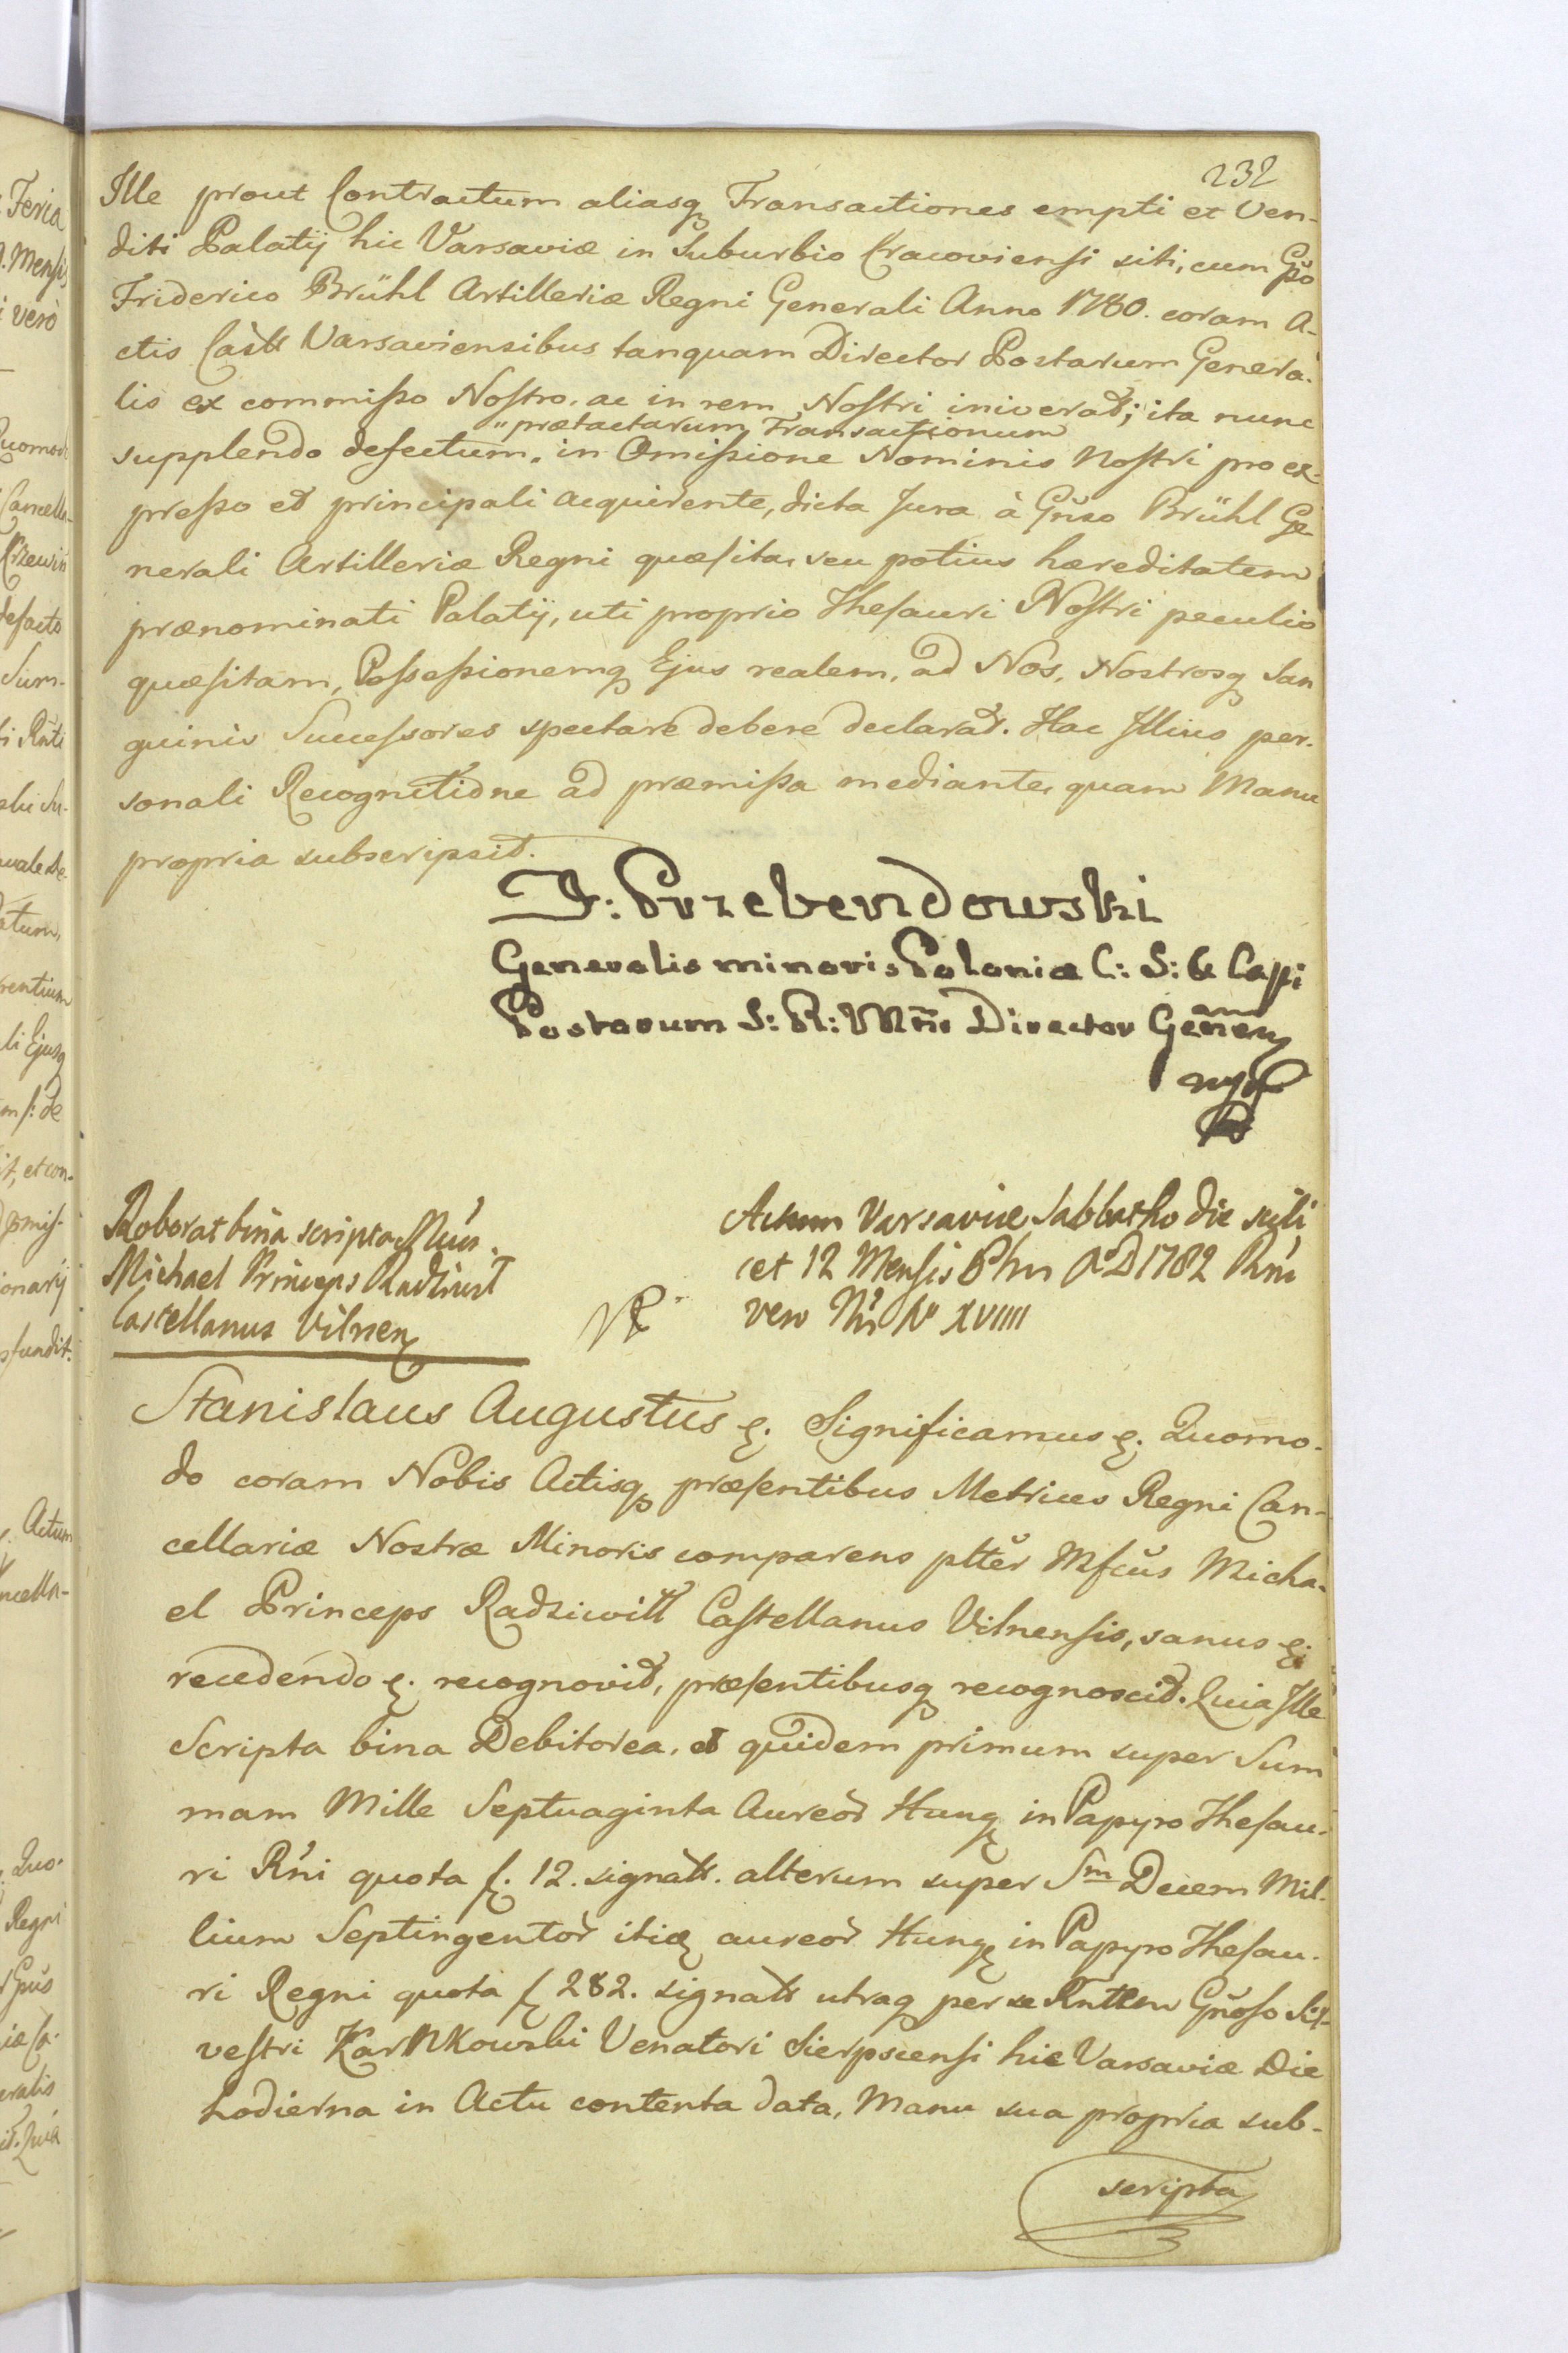 232
Ille prout Contractum aliasq Transactiones empti et Ven-
diti Palatij hic Varsaviæ in Suburbio Cracoviensi siti, cum Gso
Friderico Brühl Artilleriæ Regni Generali Anno 1780. coram A-
ctis Castt Varsaviensibus tanquam Director Postarum Genera-
lis ex commisso Nostro, ac in rem Nostri iniverat; ita nunc
"prætactarum Transactionum
supplendo defectum, in Omissione Nominis Nostri pro ex-
presso et principali acquirente, dicta Jura à Gnso Brühl Ge-
nerali Artilleriæ Regni quæsita, seu potius hæreditatem
prænominati Palatij, uti proprio Thesauri Nostri peculio
quæsitam, Possessionemq Ejus realem, ad Nos, Nostrosq San
guinis Successores spectare debere declarat. Hac Illius per-
sonali Recognitione ad præmissa mediante, quam Manu
propria subscripsit.
J: Przebendowski
Generalis minoris Poloniæ C: S: & Capi
Postarum S: R: Mtis Director Gener
mp
Roborat bina scripta
Michael Princeps Radziwił
Castellanus Vilnen
Actum Varsaviæ Sabbatho die scili
cet 12 Mensis 8bris A D 1782 Rni
vero Nri No XVIIII
Stanislaus Augustus &. Significamus &. Quomo-
do coram Nobis Actisq præsentibus Metrices Regni Can-
cellariæ Nostræ Minoris comparens pltter Mfcus Micha-
el Princeps Radziwiłł Castellanus Vilnensis, sanus &
recedendo &. recognovit, præsentibusq recognoscit. Quia Ille
Scripta bina Debitorea, et quidem primum super Sum
mam Mille Septuaginta Aureor Hung in Papyro Thesau-
ri Rni quota f. 12. signatt. alterum super Sm Decem Mil-
lium Septingentor itiq aureor Hung in Papyro Thesau-
ri Regni quota f 282. signatt utraq per se Rntem Gnoso Sil-
vestri Karnkowski Venatori Sierpscensi hic Varsaviæ Die
hodierna in Actu contenta data, Manu sua propria sub-
scripta